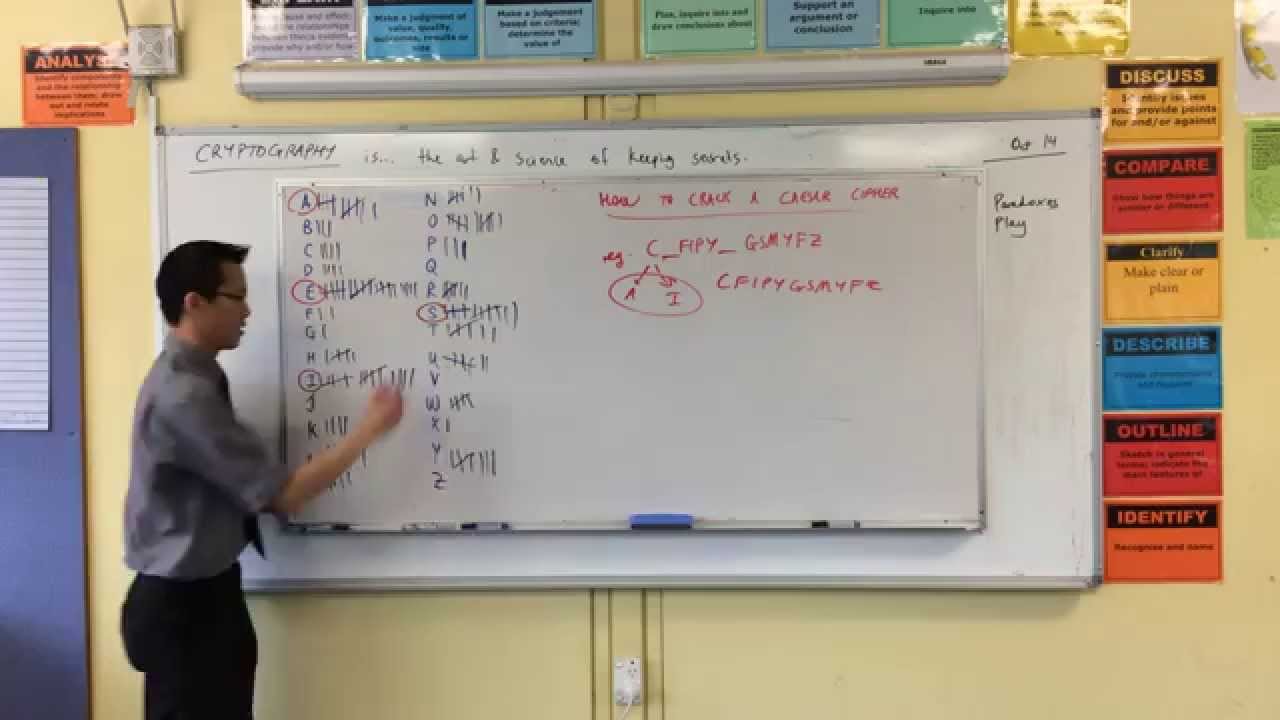 ANALYS
Identify components
and the relationship
between them; draw
out and relate
implications
cause and effect;
the relationships
between things evident;
provide why and/or how
Make a judgment of
value, quality,
outcomes, results or
size
Make a judgement
based on criteria;
determine the
value of
Plan, inquire into and
draw conclusions about
Support an
argument or
conclusion
Inquire into
CRYPTOGRAPHY is... the art & science of keeping secrets.
Oct 14
Paradoxes
Play
A
B
C
D
E
F
G
H
I
J
K
N
O
P
Q
R
S
T
U
V
W
X
Y
Z
HOW TO CRACK A CAESAR CIPHER
eg. C_FIPY_ GSMYFZ
A I
CFIPYGSMYFZ
DISCUSS
Identify issues
and provide points
for and/or against
COMPARE
Show how things are
similar or different.
Clarify
Make clear or
plain
DESCRIBE
Provide characteristics
and features
OUTLINE
Sketch in general
terms; indicate the
main features of
IDENTIFY
Recognise and name